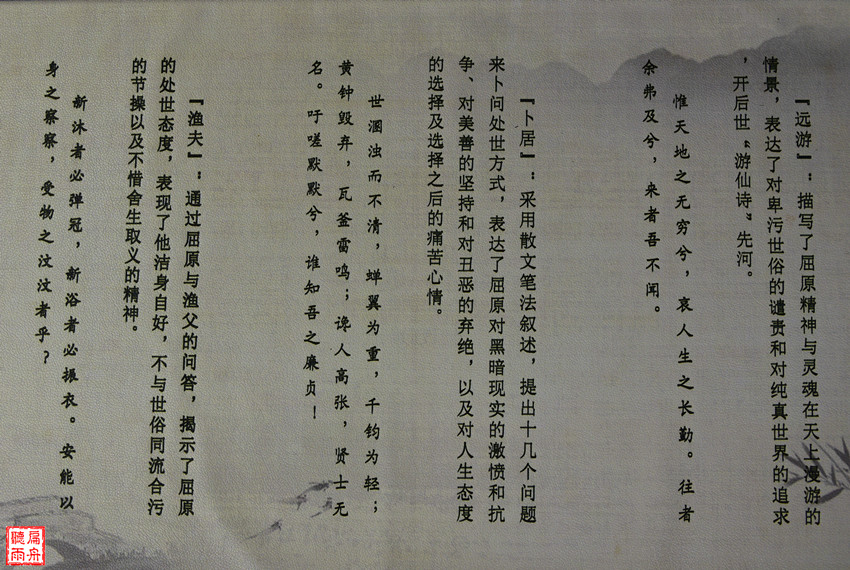 『远游』：描写了屈原精神与灵魂在天上漫游的
情景，表达了对卑污世俗的谴责和对纯真世界的追求
，开后世“游仙诗”先河。
惟天地之无穷兮，哀人生之长勤。往者
余弗及兮，来者吾不闻。
『卜居』：采用散文笔法叙述，提出十几个问题
来卜问处世方式，表达了屈原对黑暗现实的激愤和抗
争、对美善的坚持和对丑恶的弃绝，以及对人生态度
的选择及选择之后的痛苦心情。
世溷浊而不清，蝉翼为重，千钧为轻；
黄钟毁弃，瓦釜雷鸣；谗人高张，贤士无
名。吁嗟默默兮，谁知吾之廉贞！
『渔夫』：通过屈原与渔父的问答，揭示了屈原
的处世态度，表现了他洁身自好，不与世俗同流合污
的节操以及不惜舍生取义的精神。
新沐者必弹冠，新浴者必振衣。安能以
身之察察，受物之汶汶者乎？
扁舟
聽雨